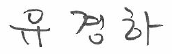 유경하